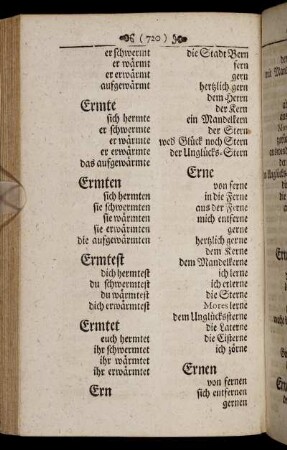 ( 720 )
er schwermt
er wärmt
er erwärmt
aufgewärmt
Ermte
sich hermte
er schwermte
er wärmte
er erwärmte
das aufgewärmte
Ermten
sich hermten
sie schwermten
sie wärmten
sie erwärmten
die aufgewärmten
Ermtest
dich hermtest
du schwermtest
du wärmtest
dich erwärmtest
Ermtet
euch hermtet
ihr schwermtet
ihr wärmtet
ihr erwärmtet
Ern
die Stadt Bern
fern
gern
hertzlich gern
dem Herrn
der Kern
ein Mandelkern
der Stern
weder Glück noch Stern
der Unglücks-Stern
Erne
von ferne
in die Ferne
aus der Ferne
mich entferne
gerne
hertzlich gerne
dem Kerne
dem Mandelkerne
ich lerne
ich erlerne
die Sterne
Mores lerne
dem Unglückssterne
die Laterne
die Cisterne
ich zörne
Ernen
von fernen
sich entfernen
gernen